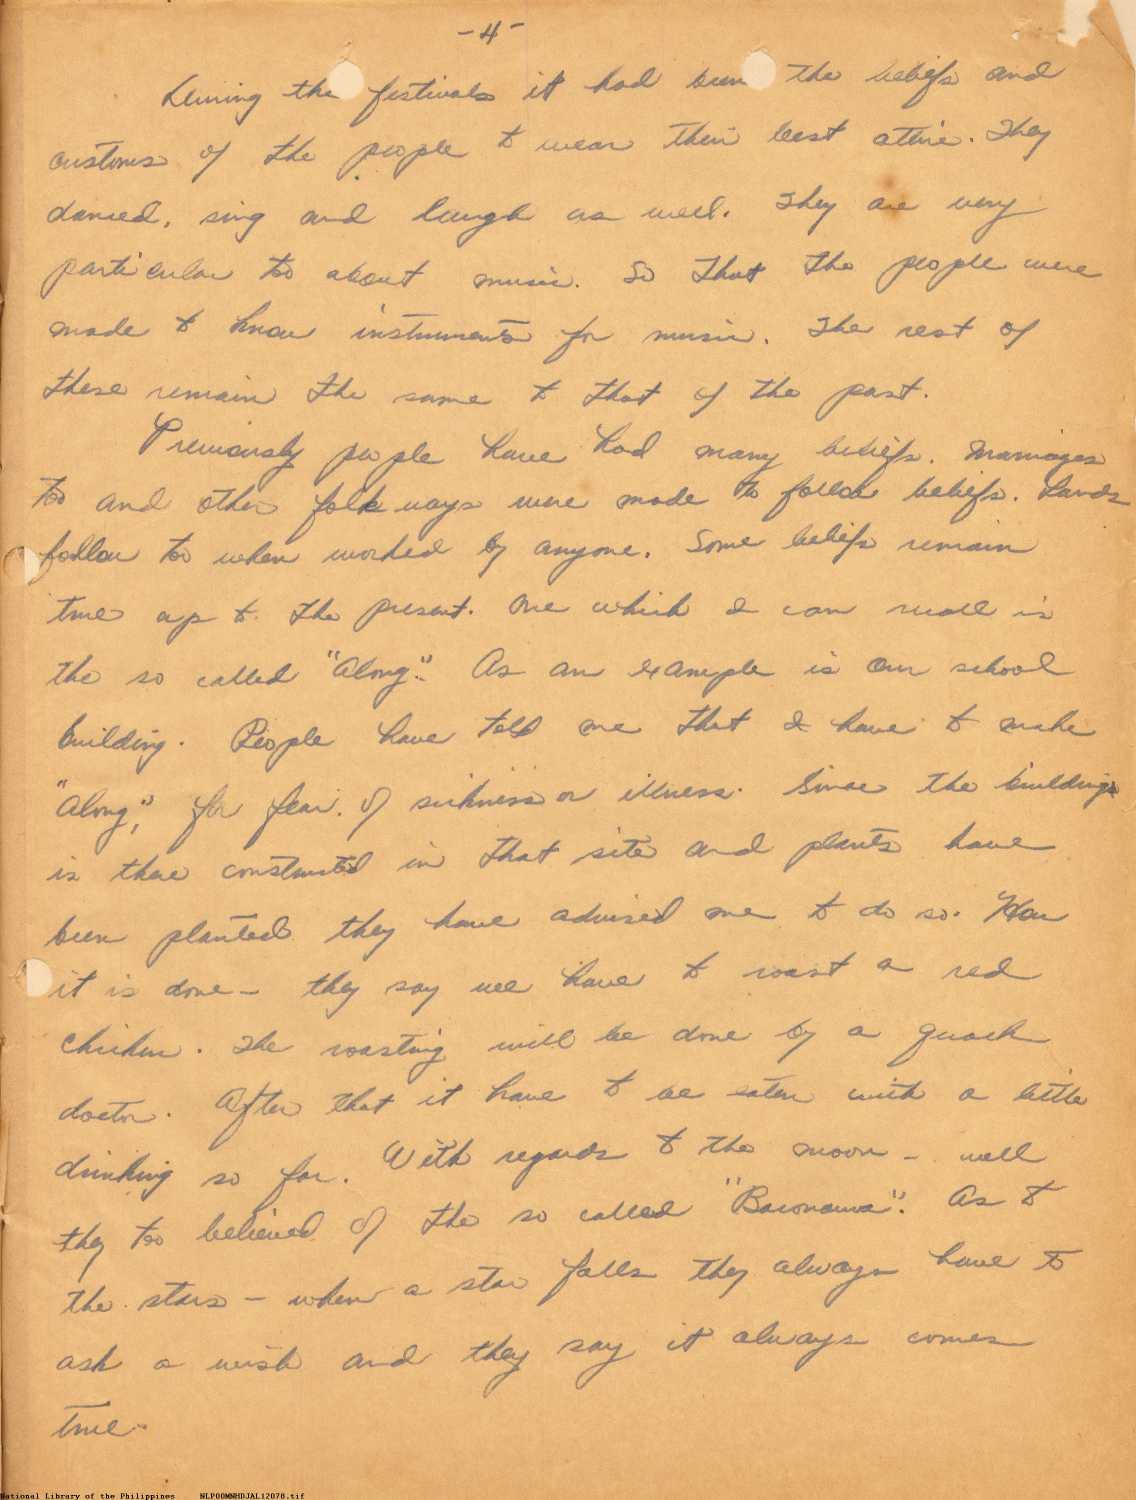 -4-
During the festivals it had been the beliefs and
customs of the people to wear their best attire. They
danced, sing and laugh as well. They are very
particular too about music. So that the people were
made to know instruments for music. The rest of
these remain the same to that of the past.
Previously people have had many beliefs. Marriages
too and other folk ways were made to follow beliefs. Lands
follow too when worked by anyone. Some beliefs remain
true up to the present. One which I can recall is
the so called "Along". As an example is our school
building. People have told me that I have to make
"Along", for fear of sickness or illness. Since the buildings
is there constructed in that site and plants have
been planted they have advised me to do so. How
it is done - they say we have to roast a red
chicken. The roasting will be done by a quack
doctor. After that it have to be eaten with a little
drinking so far. With regards to the moon - well
they too believed of the so called "Baconawa". As to
the stars - when a star falls they always have to
ask a wish and they say it always comes
true.
National Library of the Philippines NLP00MNHDJAL12078.tif